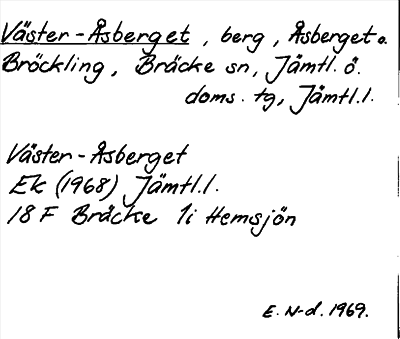 Väster-Åsberget, berg, Åsberget o.
Bröckling, Bräcke sn, Jämtl. ö.
doms. tg, Jämtl.l.
Väster-Åsberget
Ek (1968) Jämtl.l.
18 F Bräcke 1i Hemsjön
E. N-d. 1969.